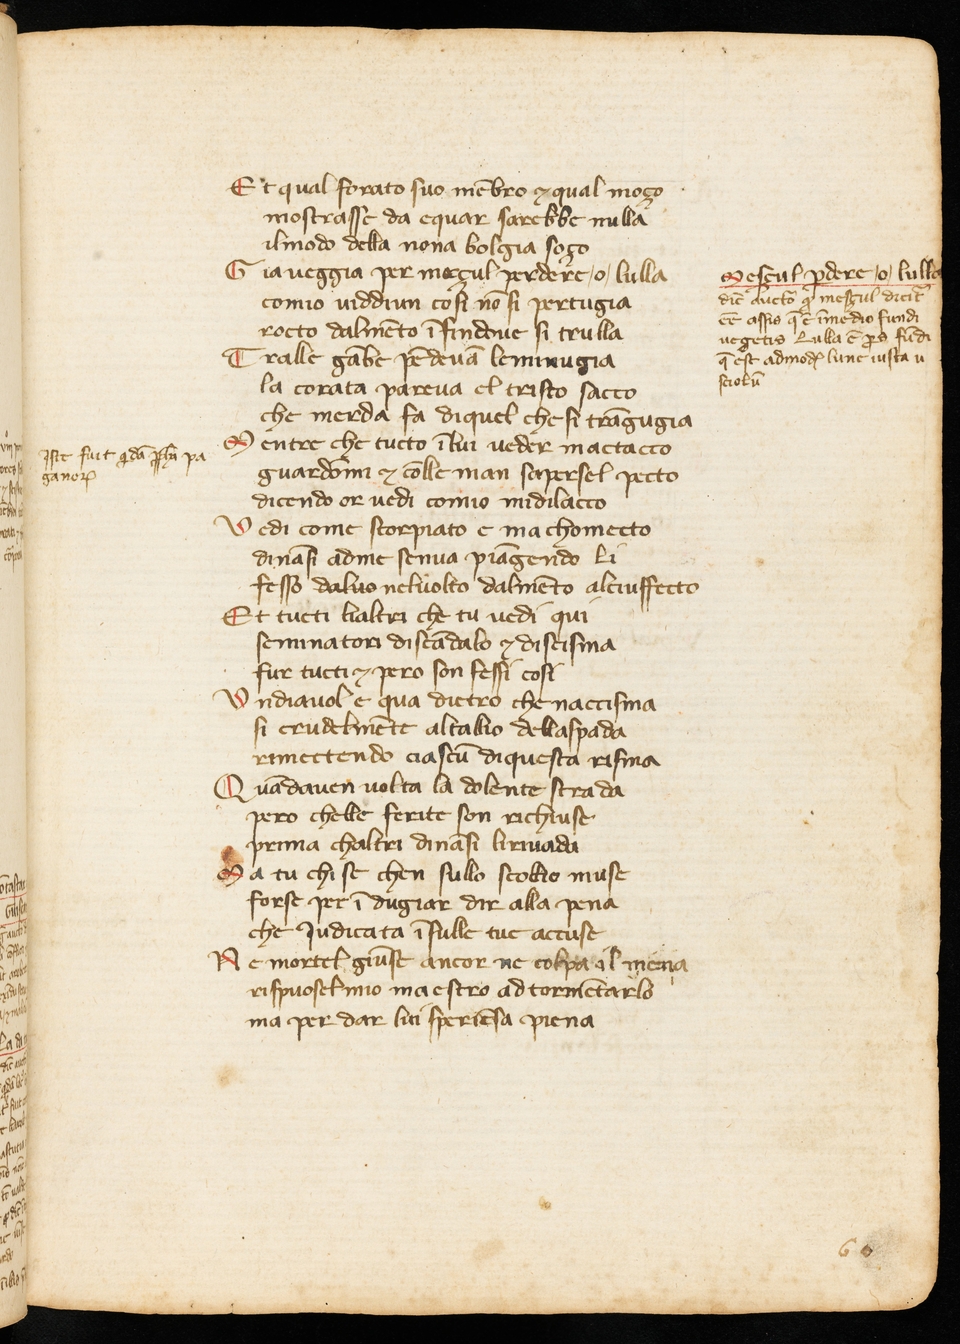 Et qual forato suo mēbro ⁊ qual moço
mostrasse da equar sarebbe nulla
il modo della nona bolgia soço
Gia veggia per meççul perdere /o/ lulla
comio viddi un cosi nō si pertugia
rocto dal mēto ĩ findove si trulla
Tralle gābe pēdevā le minugia
la corata pareva el tristo sacco
che merda fa di quel che si trāgugia
Mentre che tucto ĩ lui veder mactacco
guardōmi ⁊ colle man sapersel pecto
dicendo or vedi comio midilacco
Vedi come scorpiato e machomecto
dināsi adme senva piāgendo Li
fesso dalvo nelvolto dalmēto alciuffecto
Et tucti lialtri che tu vedi qui
seminatori discādalo ⁊ discisma
fur tucti ⁊ pero son fessi cosi
Undiavol e qua dietro che naccisma
si crudelmēte altallio dellaspada
rimettendo ciascū diquesta risma
Quādaven volta la dolente strada
pero chelle ferite son richiuse
prima chaltri dināsi lirivada
Ma tu chi se chen sullo scollio muse
forse per ĩdugiar dir alla pena
che Judicata ĩ sulle tue accuse
Ne mortel giūse ancor ne colpa il mena
rispuosel mio maestro ad tormētarlo
ma per dar lui speriēsa piena
Mesçul pdere /o/ lulla
dic̄ auctō q̄ mesçul dicit̄
eē assis q̄ ē ĩ medio fundi
vegetis Lulla ē ps fūdi
q̄ est admodȝ lune iusta u
sciolū
Iste fuit qdā pph̄a pa
ganorȝ
60